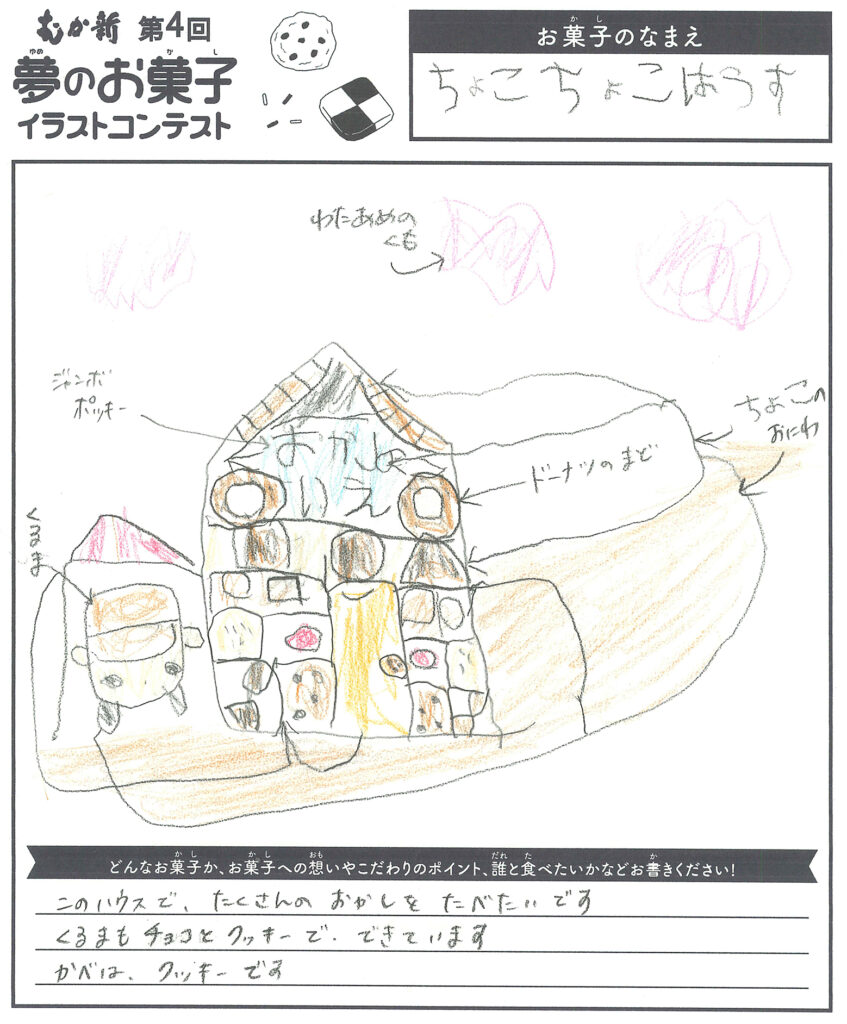 むか新 第4回
夢のお菓子
ゆめ かし
イラストコンテスト
お菓子のなまえ
かし
ちょこちょこはうす
わたあめの
くも
ジャンボ
ポッキー
おかしの
いえ
ドーナツのまど
ちょこの
おにわ
くるま
どんなお菓子か、お菓子への想いやこだわりのポイント、誰と食べたいかなどお書きください!
かし かし おも だれ た か
このハウスで、たくさんの おかしを たべたいです
くるまも チョコと クッキーで、できています
かべは、クッキーです